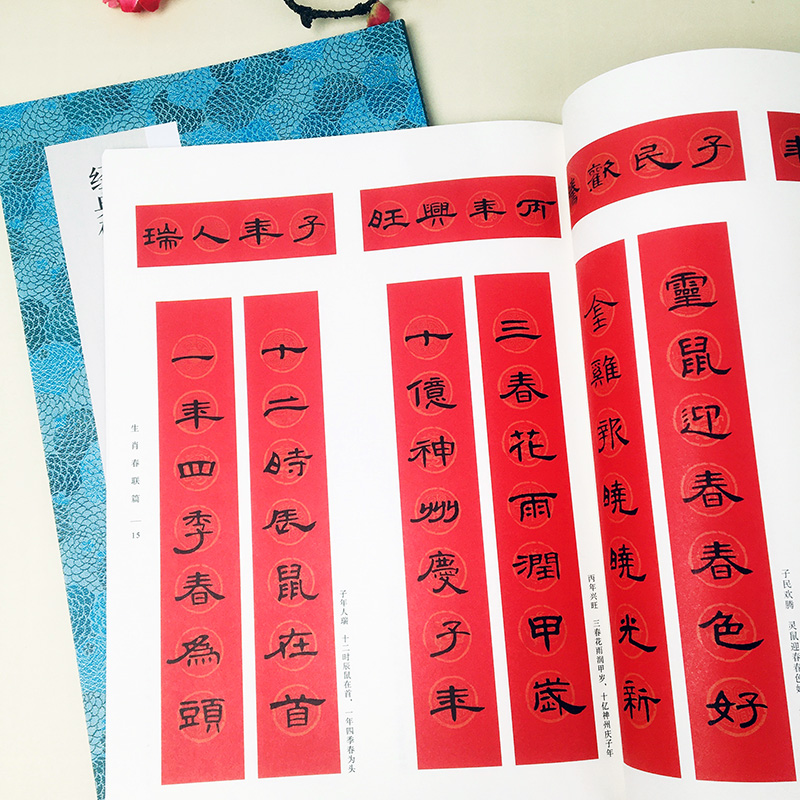 子民歡
靈鼠迎春春色好
金雞報曉曉光新
子民欢腾 灵鼠迎春春色
丙年興旺
三春花雨潤甲歲
十億神州慶子年
丙年兴旺 三春花雨润甲岁，十亿神州庆子年
子年人瑞
十二時辰鼠在首
一年四季春為頭
子年人瑞 十二时辰鼠在首，一年四季春为头
生肖春联篇 — 15